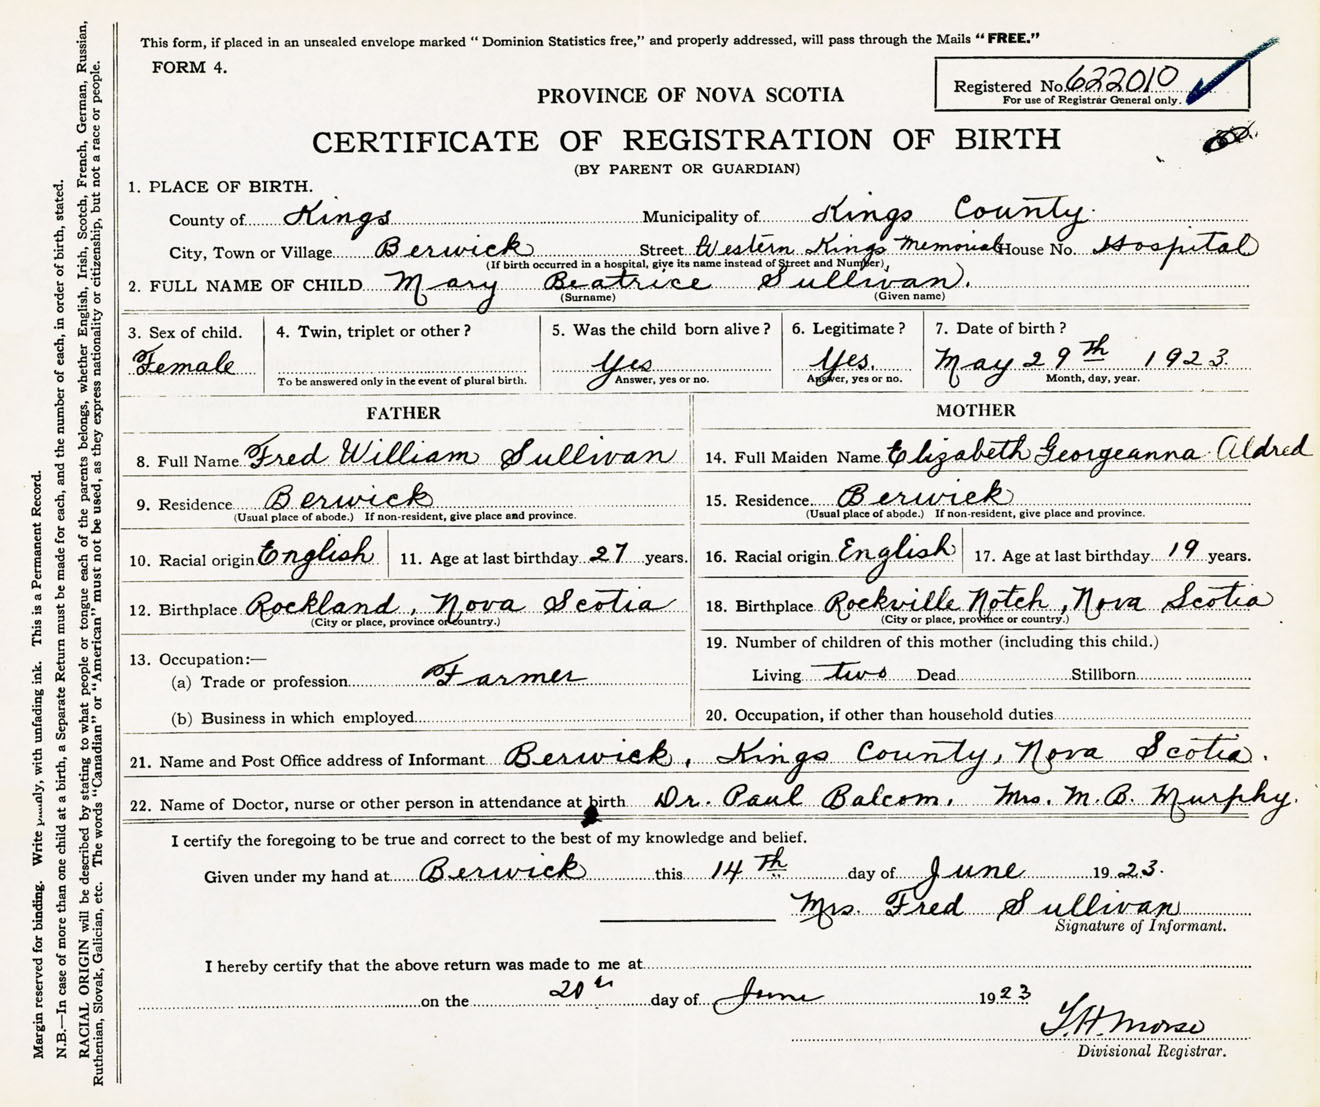 This form, if placed in an unsealed envelope marked "Dominion Statistics free," and properly addressed, will pass through the Mails "FREE."
FORM 4.
Registered No. 622010
For use of Registrar General only.
PROVINCE OF NOVA SCOTIA
CERTIFICATE OF REGISTRATION OF BIRTH
(BY PARENT OR GUARDIAN)
1. PLACE OF BIRTH.
County of Kings Municipality of Kings County.
City, Town or Village Berwick Street Western Kings Memorial House No. Hospital
(If birth occurred in a hospital, give its name instead of Street and Number)
2. FULL NAME OF CHILD Mary Beatrice Sullivan.
(Surname) (Given name)
3. Sex of child. 4. Twin, triplet or other? 5. Was the child born alive? 6. Legitimate? 7. Date of birth?
Female Yes Yes. May 29th 1923.
To be answered only in the event of plural birth. Answer, yes or no. Answer, yes or no. Month, day, year.
FATHER MOTHER
8. Full Name Fred William Sullivan 14. Full Maiden Name Elizabeth Georgeanna Aldred
9. Residence Berwick 15. Residence Berwick
(Usual place of abode.) If non-resident, give place and province. (Usual place of abode.) If non-resident, give place and province.
10. Racial origin English 11. Age at last birthday 27 years. 16. Racial origin English 17. Age at last birthday 19 years.
12. Birthplace Rockland, Nova Scotia 18. Birthplace Rockville Notch, Nova Scotia
(City or place, province or country.) (City or place, province or country.)
13. Occupation:— 19. Number of children of this mother (including this child.)
(a) Trade or profession Farmer Living two Dead Stillborn
(b) Business in which employed 20. Occupation, if other than household duties
21. Name and Post Office address of Informant Berwick, Kings County, Nova Scotia.
22. Name of Doctor, nurse or other person in attendance at birth Dr. Paul Balcom. Mrs. M. B. Murphy.
I certify the foregoing to be true and correct to the best of my knowledge and belief.
Given under my hand at Berwick this 14th day of June 1923.
Mrs. Fred Sullivan
Signature of Informant.
I hereby certify that the above return was made to me at
on the 20th day of June 1923
Divisional Registrar.
Margin reserved for binding. Write with unfading ink. This is a Permanent Record.
N.B.—In case of more than one child at a birth, a Separate Return must be made for each, and the number of each, in order of birth, stated.
RACIAL ORIGIN will be described by stating to what people or tongue each of the parents belongs, whether English, Irish, Scotch, French, German, Russian,
Ruthenian, Slovak, Galician, etc. The words "Canadian" or "American" must not be used, as they express nationality or citizenship, but not a race or people.